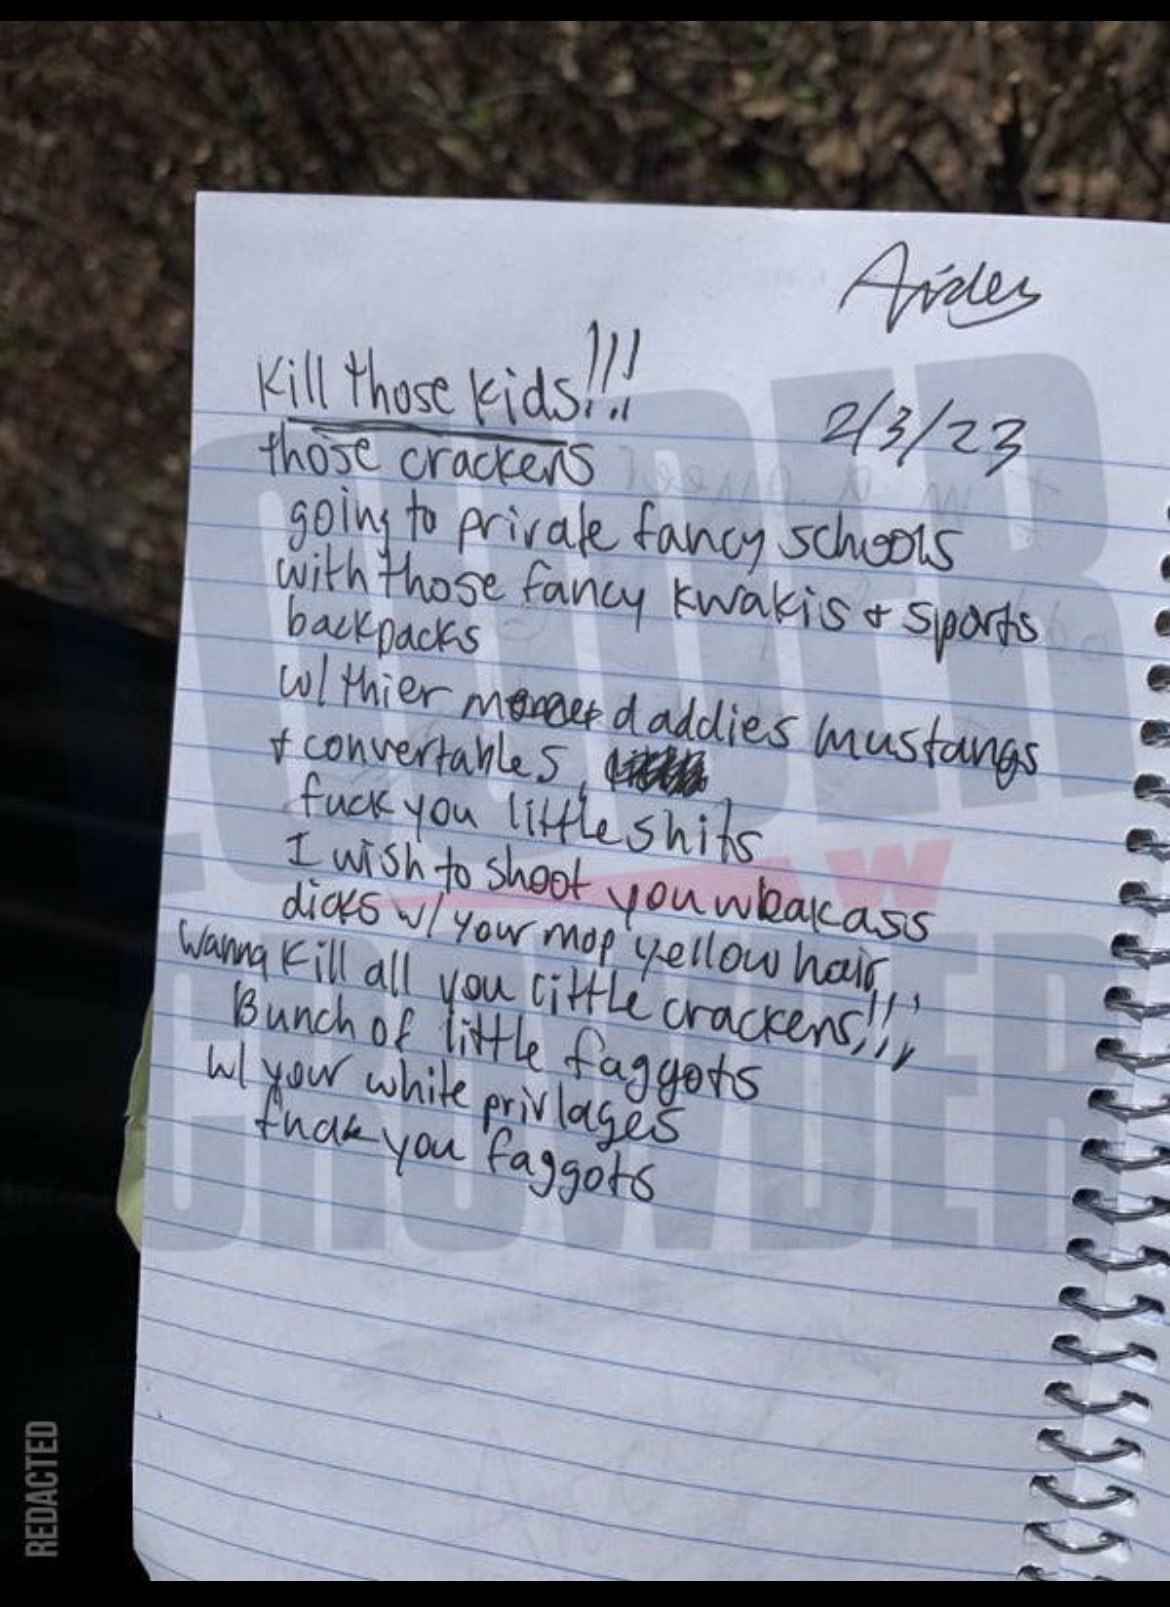 Aiden
2/3/23
Kill those kids!!!
those crackers
going to private fancy schools
with those fancy kwakis + sports
backpacks
w/ thier daddies mustangs
+ convertables
fuck you little shits
I wish to shoot you weakass
dicks w/ your mop yellow hair
wanna kill all you little crackers!!!
Bunch of little faggots
w/ your white privlages
fuck you faggots
LOUDER
W
CROWDER
REDACTED